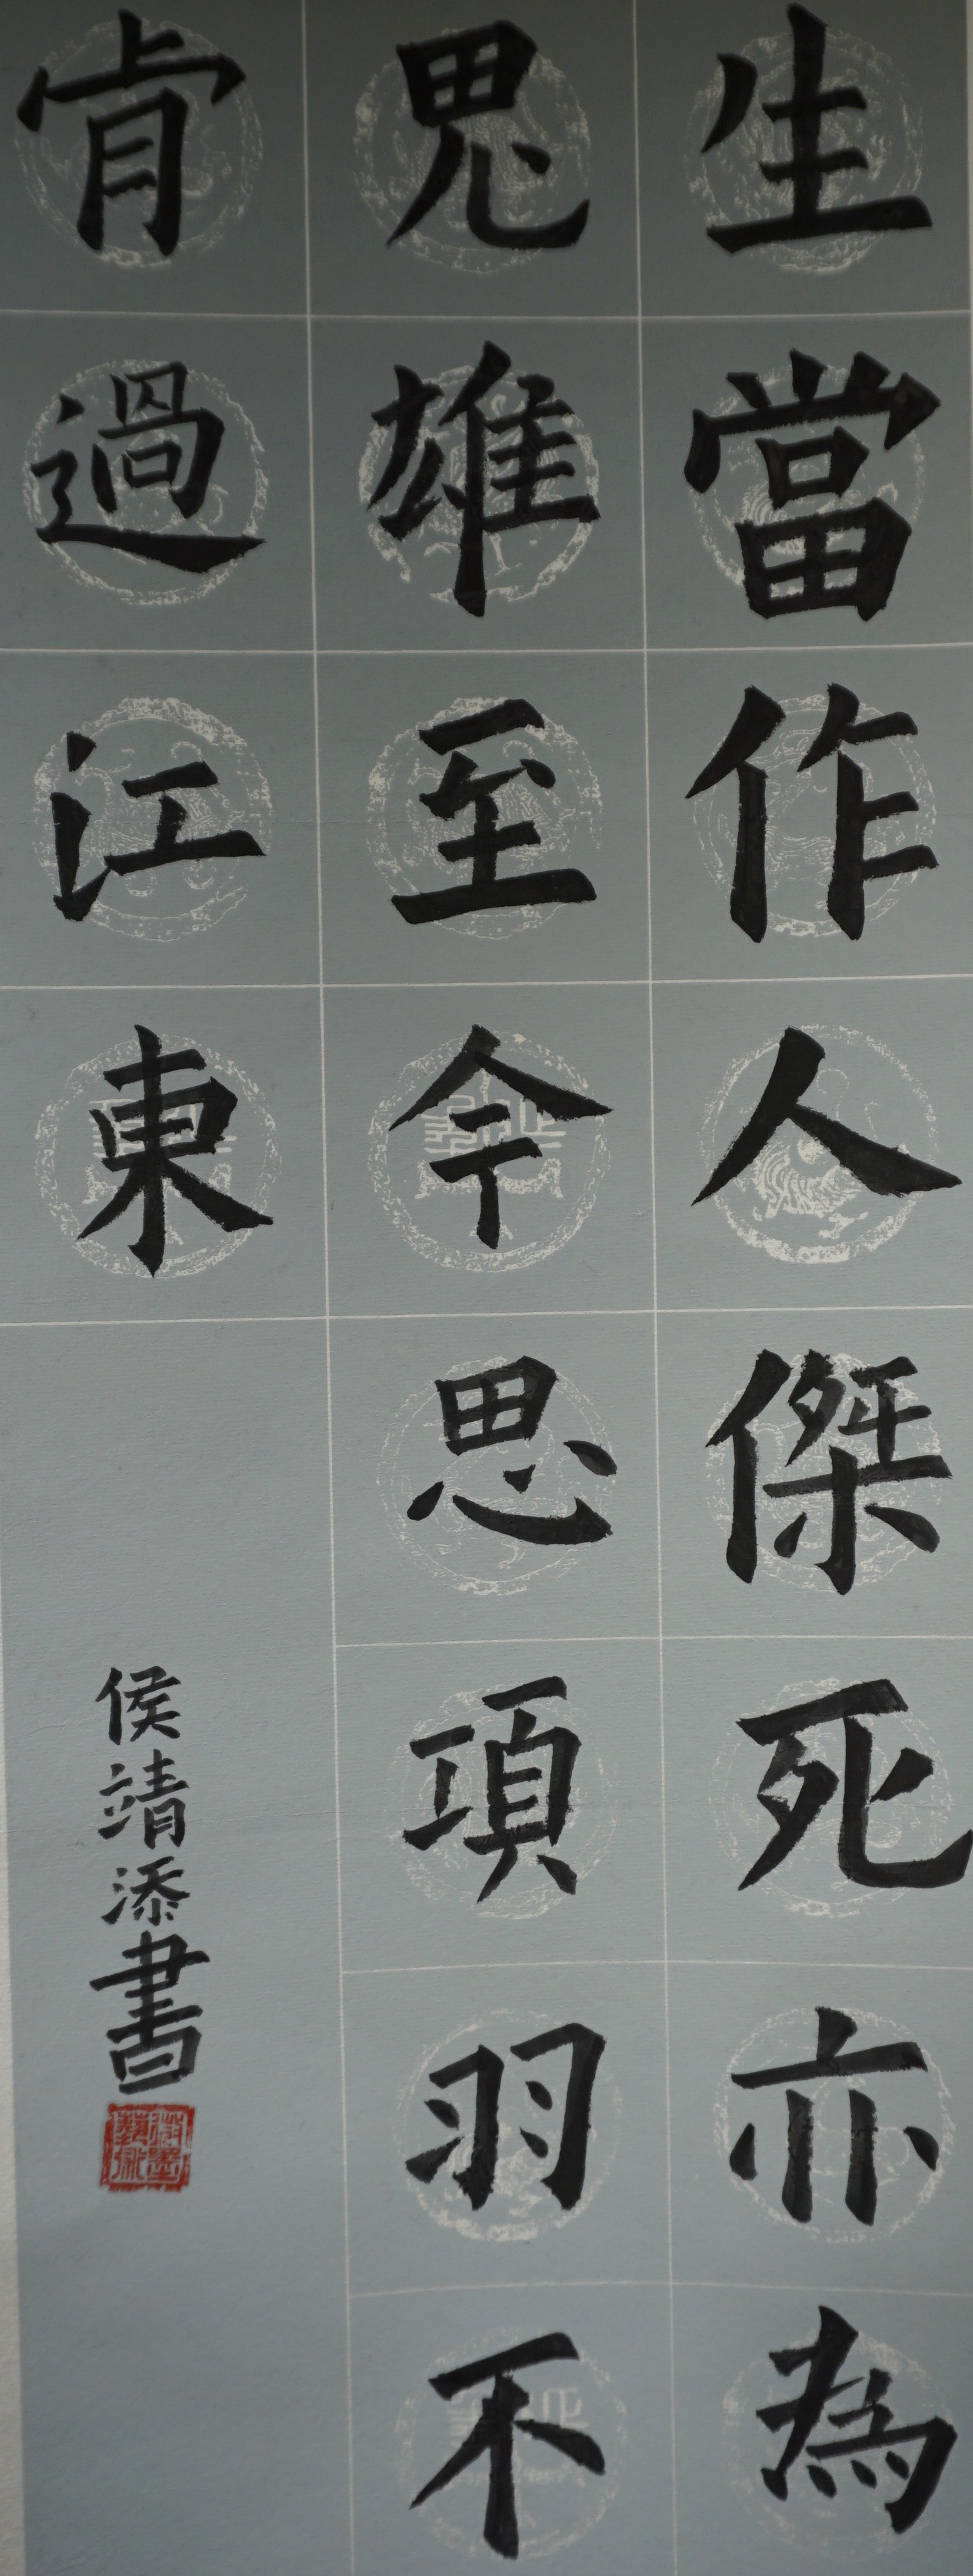 生當作人傑死亦為
鬼雄至今思項羽不
肯過江東
侯靖添書